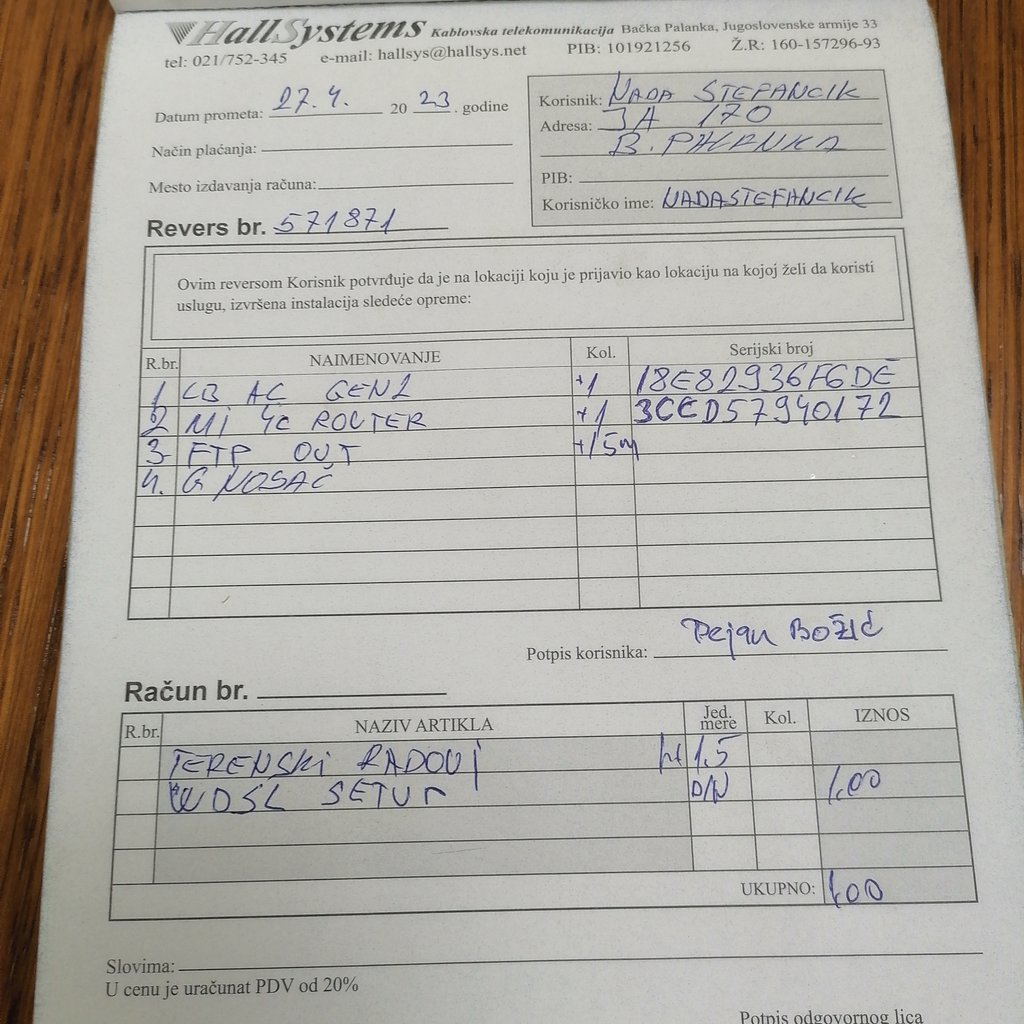 HallSystems Kablovska telekomunikacija Bačka Palanka, Jugoslovenske armije 33
tel: 021/752-345 e-mail: hallsys@hallsys.net PIB: 101921256 Ž.R: 160-157296-93
Datum prometa: 27.4. 20 23. godine
Način plaćanja:
Mesto izdavanja računa:
Revers br. 571871
Korisnik: NADA STEFANCIK
Adresa: JA 170
B. PALANKA
PIB:
Korisničko ime: NADASTEFANCIK
Ovim reversom Korisnik potvrđuje da je na lokaciji koju je prijavio kao lokaciju na kojoj želi da koristi
uslugu, izvršena instalacija sledeće opreme:
R.br. NAIMENOVANJE Kol. Serijski broj
1 LB AC GEN2 +1 18E82936F6DE
2 MI 4C ROUTER +1 3CCD57940172
3 FTP OUT +15m
4. G NOSAČ
Potpis korisnika: Dejan BOŽIĆ
Račun br.
R.br. NAZIV ARTIKLA Jed. mere Kol. IZNOS
TERENSKI RADOVI h 1.5
WDSL SETUP D/N 1,00
UKUPNO: 1,00
Slovima:
U cenu je uračunat PDV od 20%
Potpis odgovornog lica